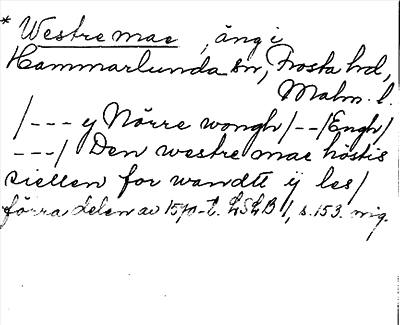 * Westre mae, äng i
Hammarlunda sn, Frosta hd,
Malm. l.
/--- y Nörre wongh/--/Engh/
---/ Den westre mae höstis
siellen for wandtt ij les/
förra delen av 1570-t. LSLB/, s. 153.